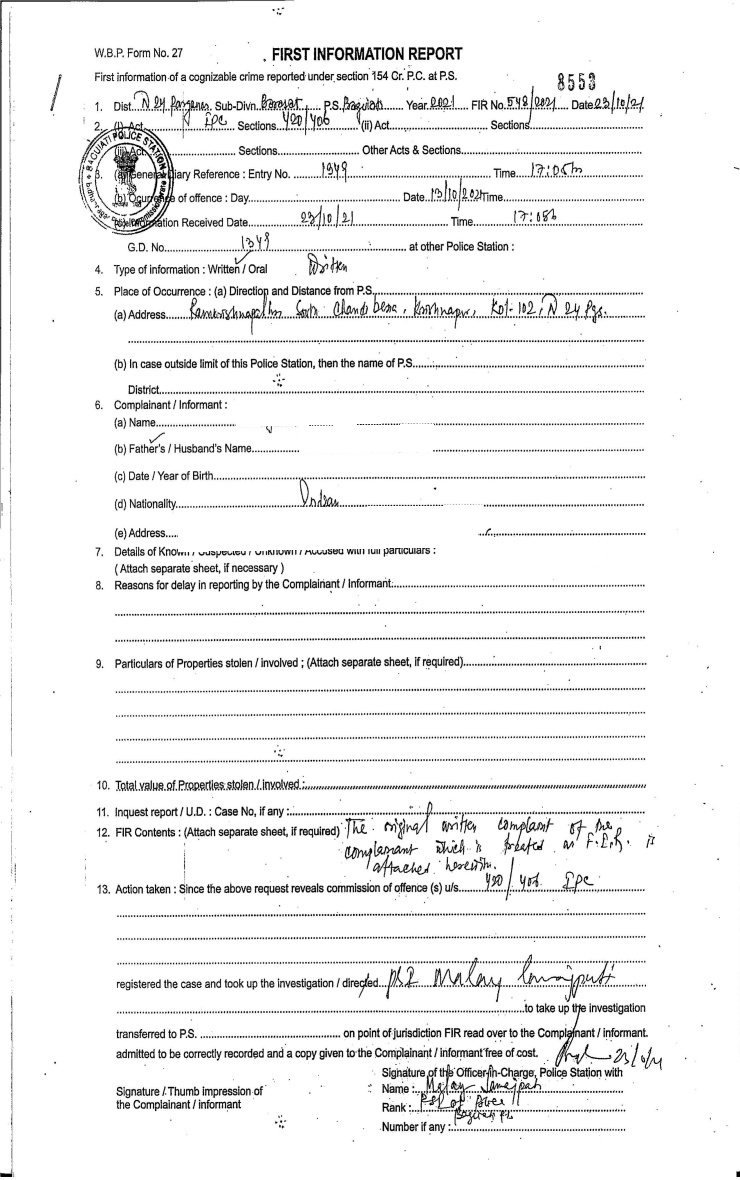 W.B.P. Form No. 27
FIRST INFORMATION REPORT
First information of a cognizable crime reported under section 154 Cr. P.C. at P.S.
8553
1. Dist. N 24 Parganas Sub-Divn. Barasat P.S. Baguiati Year 2021 FIR No. 548/2021 Date 23/10/21
2. (i) Act IPC Sections 420/406 (ii) Act Sections
(iii) Act Sections Other Acts & Sections
BAGUIATI POLICE STATION
3. (a) General Diary Reference : Entry No. 1349 Time 17:05
(b) of offence : Day Date 13/10/2021 Time
Information Received Date 23/10/21 Time 17:05
G.D. No. 1349 at other Police Station :
4. Type of information : Written / Oral Written
5. Place of Occurrence : (a) Direction and Distance from P.S.
(a) Address South Krishnapur, Kol-102, N 24 Pgs.
(b) In case outside limit of this Police Station, then the name of P.S.
District
6. Complainant / Informant :
(a) Name
(b) Father's / Husband's Name
(c) Date / Year of Birth
(d) Nationality Indian
(e) Address
7. Details of Known / Suspected / Unknown / Accused with full particulars :
( Attach separate sheet, if necessary )
8. Reasons for delay in reporting by the Complainant / Informant:
9. Particulars of Properties stolen / involved ; (Attach separate sheet, if required)
10. Total value of Properties stolen / involved :
11. Inquest report / U.D. : Case No, if any :
12. FIR Contents : (Attach separate sheet, if required) The original written complaint of the
complainant which is treated as F.I.R. is
attached herewith.
13. Action taken : Since the above request reveals commission of offence (s) u/s 420/406 IPC
registered the case and took up the investigation / directed PSI Malay
to take up the investigation
transferred to P.S. on point of jurisdiction FIR read over to the Complainant / informant.
admitted to be correctly recorded and a copy given to the Complainant / informant free of cost.
Signature of the Officer-in-Charge, Police Station with
Signature / Thumb impression of
the Complainant / informant
Name : Malay
Rank : PSI of Police
Number if any :